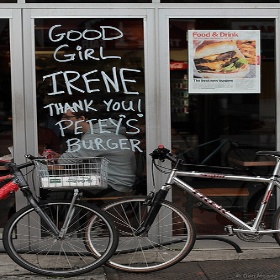 GOOD
GIRL
IRENE
THANK YOU!
PETEY'S
BURGER
Food & Drink
The best new burgers